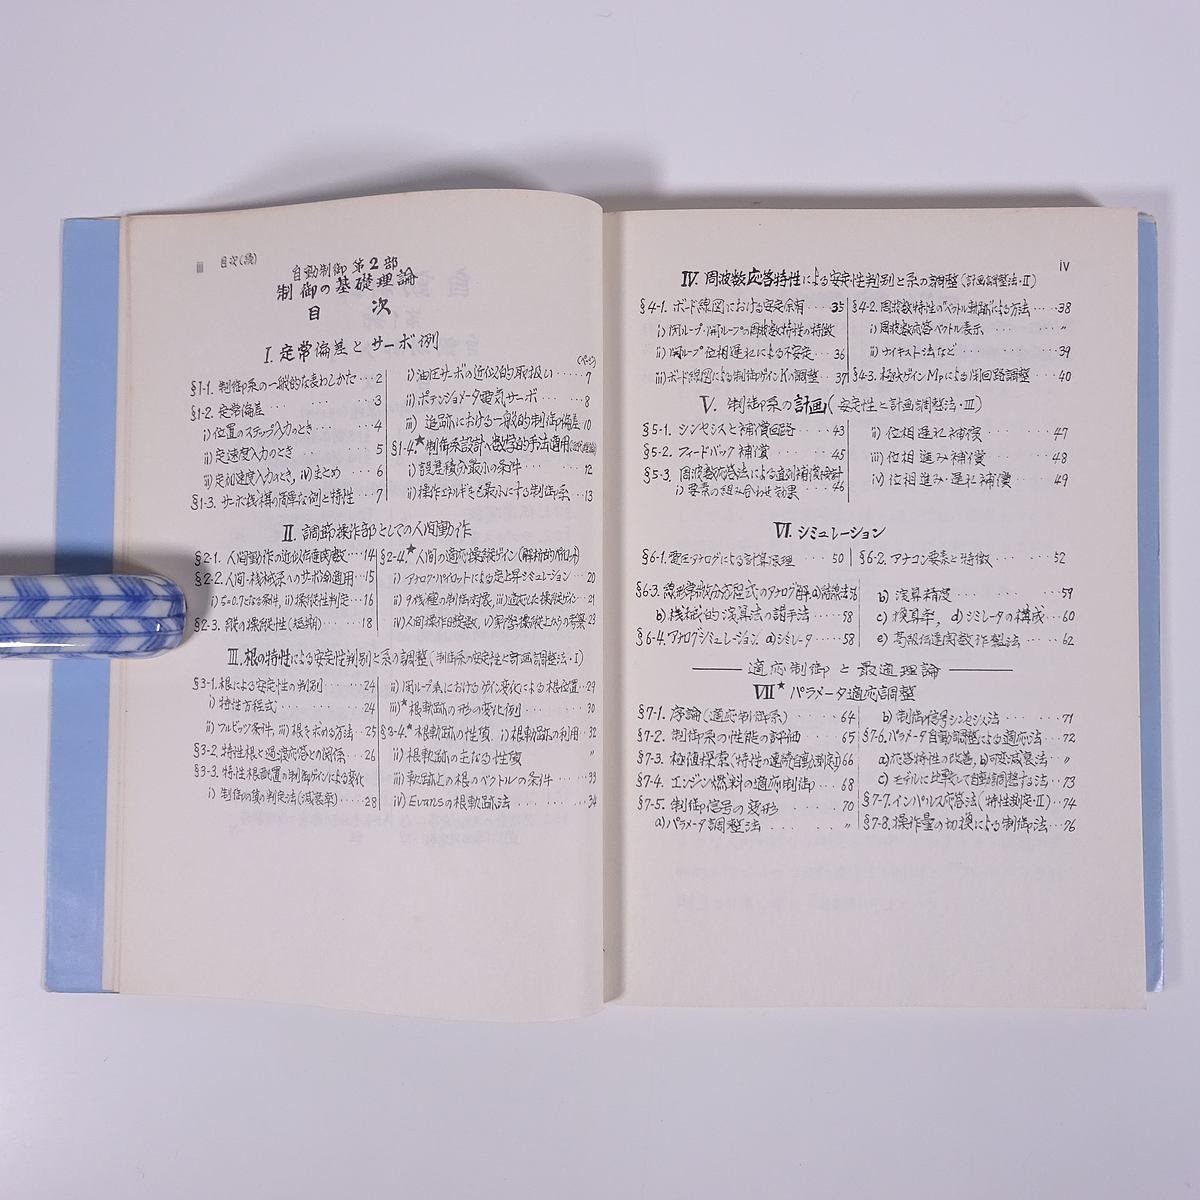 iii 目次(続)
自動制御 第2部
制御の基礎理論
目 次
I. 定常偏差とサーボ例
(ページ)
§1-1. 制御系の一般的な表わしかた・・・2
§1-2. 定常偏差・・・3
i) 位置のステップ入力のとき・・・4
ii) 定速度入力のとき 5
iii) 定加速度入力のとき, iv) まとめ・・・6
§1-3. サーボ機構の簡単な例と特性・・・7
i) 油圧サーボの近似的取扱い・・・7
ii) ポテンショメータ電気サーボ・・・8
iii) 追跡における一般的制御偏差 10
§1-4.★制御系設計へ数学的手法適用
i) 誤差積分最小の条件・・・12
ii) 操作エネルギをも最小にする制御系・・・13
II. 調節操作部としての人間動作
§2-1. 人間動作の近似伝達関数・・・14
§2-2. 人間-機械系へのサーボ的適用・・・15
i) ζ=0.7となる条件, ii) 操縦性判定・・・16
§2-3. 縦の操縦性(短周期) 18
§2-4.★人間の適応操縦ゲイン(解析的パイロット)
i) アナログ・パイロットによる定上昇シミュレーション・・・20
ii) 9機種の制御対象, iii) 適応した操縦ゲイン・・・21
iv) 人間操作時定数, v) 実際操縦上からの考察 23
III. 根の特性による安定性判別と系の調整(制御系の安定性と計画調整法・I)
§3-1. 根による安定性の判別・・・24
i) 特性方程式・・・24
ii) フルビッツ条件, iii) 根を求める方法・・・25
§3-2. 特性根と過渡応答との関係・・・26
§3-3. 特性根配置の制御ゲインによる変化
i) 制御の質の判定法(減衰率)・・・28
ii) 閉ループ系におけるゲイン変化による根位置・・・29
iii)★根軌跡の形の変化例・・・30
§3-4.★根軌跡の性質, i) 根軌跡の利用・・・32
ii) 根軌跡の主なる性質 〃
iii) 軌跡上の根のベクトルの条件・・・33
iv) Evansの根軌跡法・・・34
iv
IV. 周波数応答特性による安定性判別と系の調整(計画調整法・II)
§4-1. ボード線図における安定余有・・・35
i) 閉ループ・開ループの周波数特性の特徴
ii) 閉ループ位相遅れによる不安定・・・36
iii) ボード線図による制御ゲインKの調整・・・37
§4-2. 周波数特性の"ベクトル軌跡"による方法・・・38
i) 周波数応答ベクトル表示・・・〃
ii) ナイキスト法など・・・39
§4-3. 極大ゲインMpによる閉回路調整・・・40
V. 制御系の計画(安定性と計画調整法・III)
§5-1. シンセシスと補償回路・・・43
§5-2. フィードバック補償・・・45
§5-3. 周波数応答法による直列補償検討
i) 要素の組み合わせ効果・・・46
ii) 位相遅れ補償・・・47
iii) 位相進み補償・・・48
iv) 位相進み・遅れ補償・・・49
VI. シミュレーション
§6-1. 電圧アナログによる計算原理・・・50
§6-2. アナコン要素と特徴・・・52
§6-3. 線形常微分方程式のアナログ解,
b) 機械的演算法の諸手法・・・58
§6-4. アナログシミュレーション, a) シミレータ・・・58
b) 演算精度・・・59
c) 換算率, d) シミレータの構成・・・60
e) 高級伝達関数作製法・・・62
適応制御と最適理論
VII★ パラメータ適応調整
§7-1. 序論(適応制御系)・・・64
§7-2. 制御系の性能の評価・・・65
§7-3. 極値探索(特性の連続自動測定) 66
§7-4. エンジン燃料の適応制御・・・68
§7-5. 制御信号の変形・・・70
a) パラメータ調整法・・・〃
b) 制御信号シンセシス法・・・71
§7-6. パラメータ自動調整による適応法・・・72
a) 応答特性の改善, b) 可変減衰法・・・〃
c) モデルに比較して自動調整する法・・・73
§7-7. インパルス応答法(特性測定・II)・・・74
§7-8. 操作量の切換による制御法・・・76